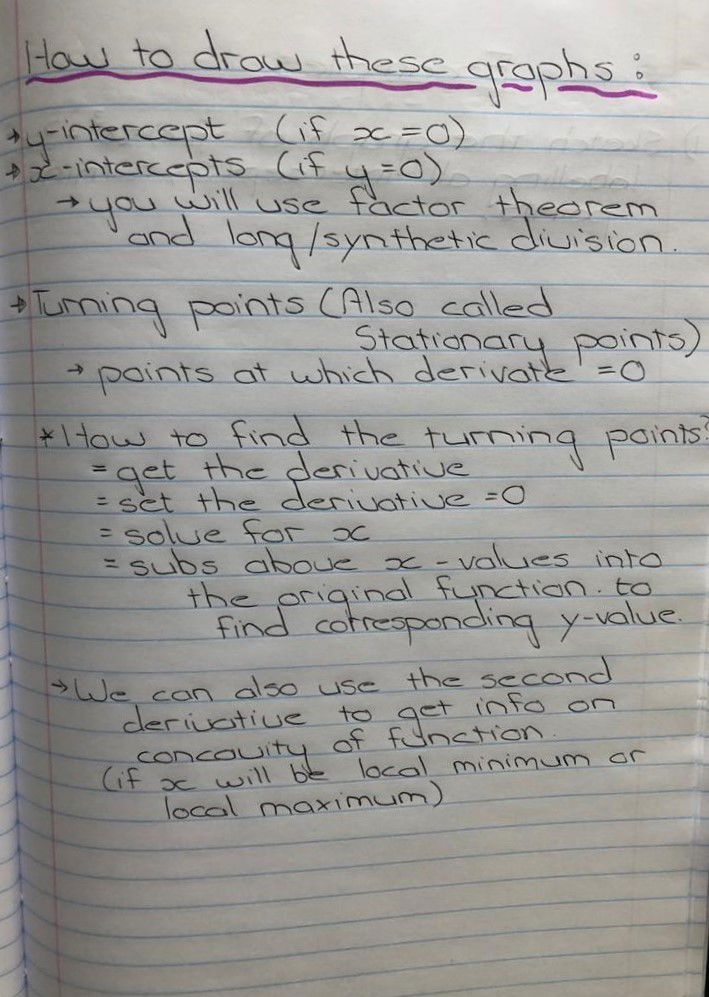 How to draw these graphs:
→ y-intercept (if x=0)
→ x-intercepts (if y=0)
→ you will use factor theorem
and long/synthetic division.
→ Turning points (Also called
Stationary points)
→ points at which derivate =0
* How to find the turning points?
= get the derivative
= set the derivative =0
= solve for x
= subs above x-values into
the original function to
find corresponding y-value.
→ We can also use the second
derivative to get info on
concavity of function.
(if x will be local minimum or
local maximum)